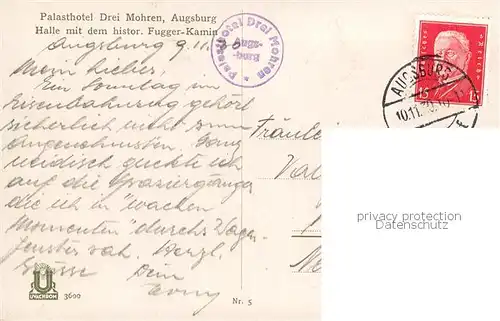 Palasthotel Drei Mohren, Augsburg
Halle mit dem histor. Fugger-Kamin
Augsburg 9.11.30
Mein Lieber,
Ein Sonntag im
Eisenbahnzug gehört
sicherlich nicht zum
Angenehmsten. Ganz
neidisch guckte ich
auf die Spaziergänger
die ich in "wachen
Momenten" durchs Wagen-
fenster sah. Herzl.
Grüsse Dein
Palasthotel Drei Mohren
Augs-
burg
AUGSBURG
10.11.30
15 15
Fräulein
privacy protection
Datenschutz
UVACHROM
3600
Nr. 5